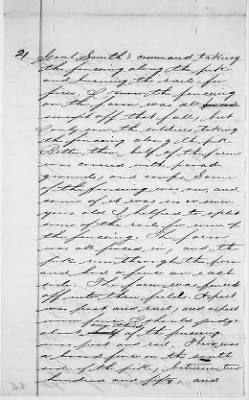 21 Genl Smith's command taking
the fencing along the pike
and burning the rails for
fires. I know the fencing
on the farm was all
swept off that fall, but
I only saw the soldiers taking
the fencing along the pike
Better than half of the farm
in corner with
grounds, and camps. Some
of the fencing was new, and
some of it was six or seven
years old I helped to split
some of the rails for some of
the fencing. The farm
was all fenced in, and the
pike run through the farm
and had a fence on each
side. The farm was fenced
off into three fields. A part
was post and rail, and a part
worm fence. I should judge
about of the fencing
any thing
was post and rail. There was
a board fence on the south
side of the pike, between two
hundred and fifty, and